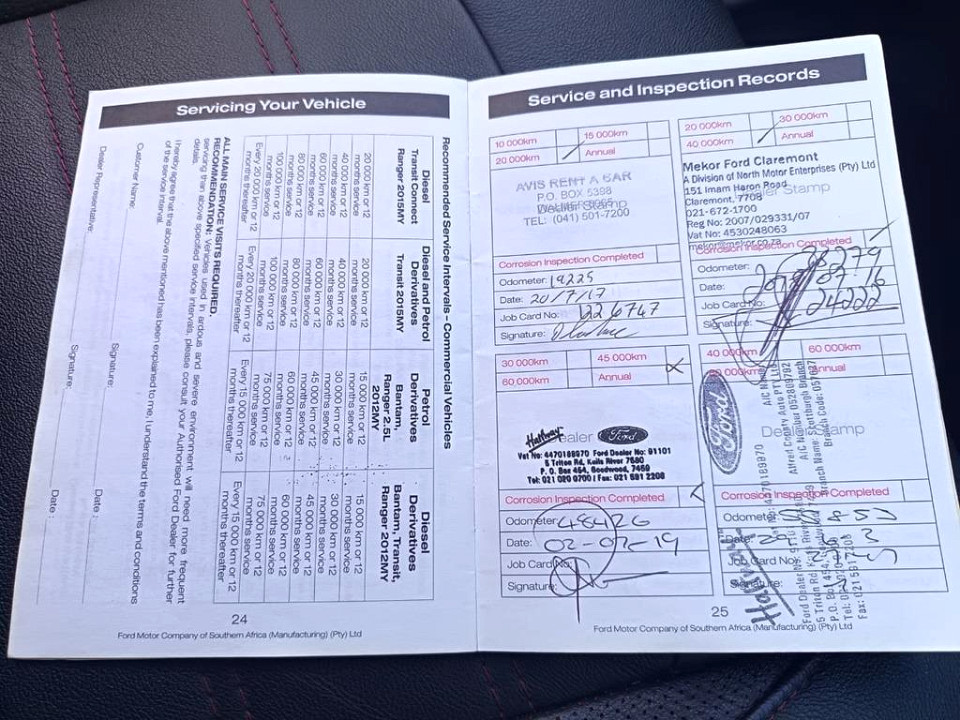 Servicing Your Vehicle
Recommended Service Intervals - Commercial Vehicles
Diesel
Transit Connect
Ranger 2015MY
20 000km or 12
months service
40 000 km or 12
months service
60 000 km or 12
months service
80 000 km or 12
months service
100 000 km or 12
months service
Every 20 000 km or 12
months thereafter
Diesel and Petrol
Derivatives
Transit 2015MY
20 000 km or 12
months service
40 000 km or 12
months service
60 000 km or 12
months service
80 000 km or 12
months service
100 000 km or 12
months service
Every 20 000 km or 12
months thereafter
Petrol
Derivatives
Bantam,
Ranger 2.5L
2012MY
15 000 km or 12
months service
30 000 km or 12
months service
45 000 km or 12
months service
60 000 km or 12
months service
75 000 km or 12
months service
Every 15 000 km or 12
months thereafter
Diesel
Derivatives
Bantam, Transit,
Ranger 2012MY
15 000 km or 12
months service
30 000 km or 12
months service
45 000 km or 12
months service
60 000 km or 12
months service
75 000 km or 12
months service
Every 15 000 km or 12
months thereafter
ALL MAIN SERVICE VISITS REQUIRED.
RECOMMENDATION: Vehicles used in ardous and severe environment will need more frequent
servicing than above specified service intervals, please consult your Authorised Ford Dealer for further
details.
I hereby agree that the above mentioned has been explained to me, I understand the terms and conditions
of the service interval.
Customer Name:
Signature:
Date :
Dealer Representative:
Signature:
Date :
24
Ford Motor Company of Southern Africa (Manufacturing) (Pty) Ltd
Service and Inspection Records
10 000km
15 000km
20 000km
Annual
AVIS RENT A CAR
P.O. BOX 5398
Dealer Stamp
TEL: (041) 501-7200
Corrosion Inspection Completed
Odometer: 19225
Date: 20/7/17
Job Card No: 226747
Signature:
20 000km
30 000km
40 000km
Annual
Mekor Ford Claremont
A Division of North Motor Enterprises (Pty) Ltd
151 Imam Haron Road
Dealer Stamp
Claremont, 7708
021-672-1700
Reg No: 2007/029331/07
Vat No: 4530248063
mekor@mekor.co.za
Corrosion Inspection Completed
Odometer:
Date:
Job Card No: 24222
Signature:
30 000km
45 000km
60 000km
Annual
Halfway Dealer Ford
Vat No: 4470189970 Ford Dealer No: 91101
5 Triton Rd, Kuils River 7580
P. O. Box 454, Goodwood, 7459
Corrosion Inspection Completed
Odometer: 48426
Date: 02-07-19
Job Card No:
Signature:
40 000km
60 000km
Annual
Ford
Dealer Stamp
Corrosion Inspection Completed
Odometer:
Date:
Job Card No:
Signature:
Halfway
25
Ford Motor Company of Southern Africa (Manufacturing) (Pty) Ltd